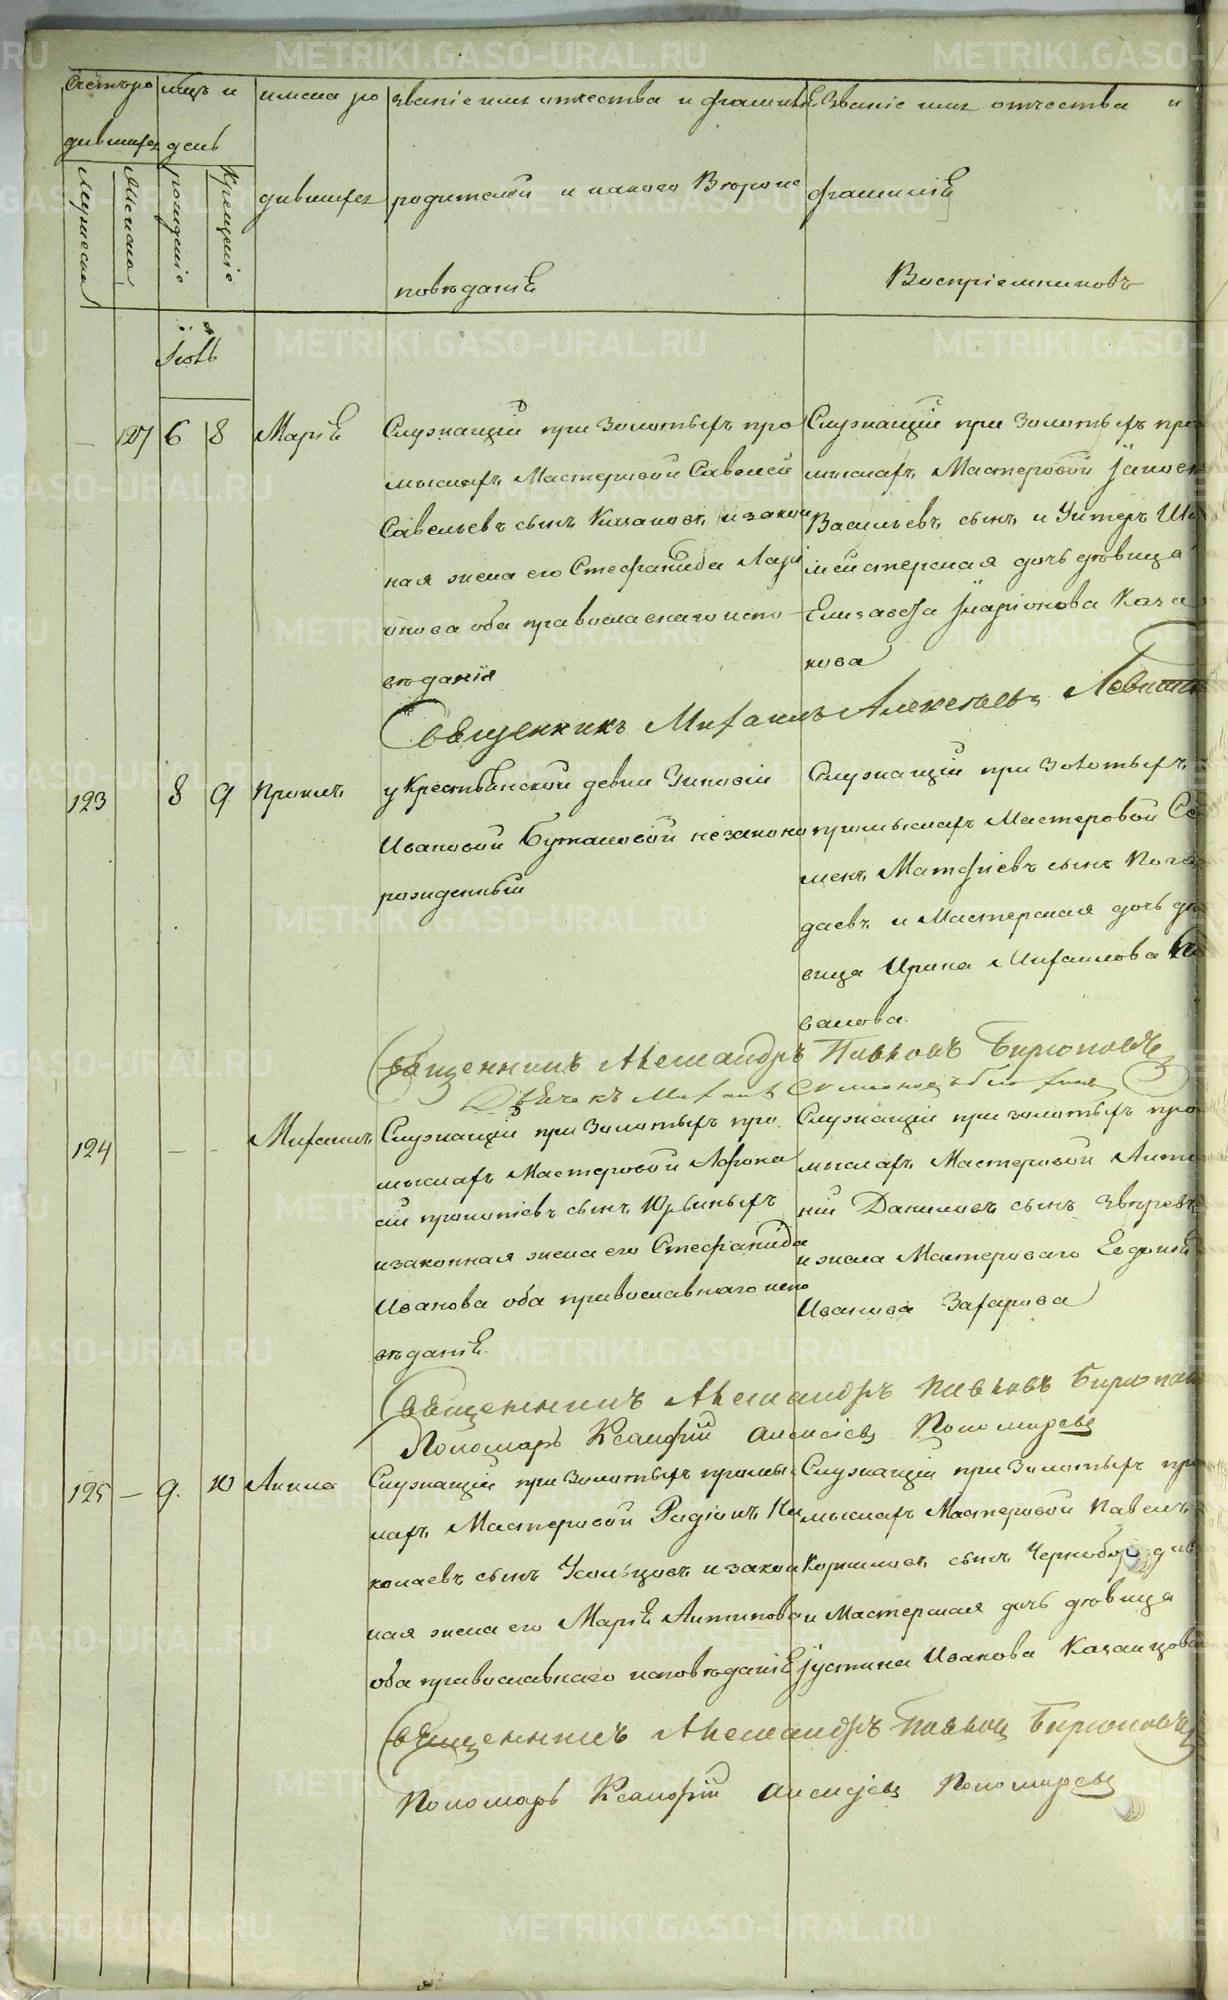 Счетъ ро
дившихся
Мужеска
Женска
мѣць и
день
рожденіе
Крещеніе
имена ро
дившихся
званіе имя отчества и фамиліѣ
родителей и какого Вѣроис
повѣданіѣ
Званіе имя отчества и
фамиліѣ
Воспріемниковъ
Іюль
— 127 6 8 Маріѣ
Служащій при Золотыхъ про
мыслахъ Мастеровой Савелей
Савельевъ сынъ Казаковъ и закон
ная жена его Стефанида Лари
онова оба православнаго испо
вѣданія
Служащій при Золотыхъ про
мыслахъ Мастеровой Іаков
Васильевъ сынъ и Унтеръ Ша
мейстерская дочь дѣвица
Елизавета Иларіонова Каза
кова
Священникъ Михаилъ Алексѣевъ
123 8 9 Прокопъ
у Крестьянской девки Зиновіи
Ивановой незаконо
рожденный
Служащій при Золотыхъ
промыслахъ Мастеровой Се
менъ Матфіевъ сынъ Пога
даевъ и Мастерская дочь дѣ
вица Ирина Михаилова
валова
Священникъ Александръ Павловъ Бирюковъ
Дьячекъ Михаилъ
124 — — Михаилъ
Служащій при Золотыхъ про
мыслахъ Мастеровой Афона
сій прокопіевъ сынъ
и законная жена его Стефанида
Иванова оба православнаго испо
вѣданіѣ
Служащій при золотыхъ про
мыслахъ Мастеровой Анто
ній Даниловъ сынъ Звѣревъ
и жена Мастероваго Евдокія
Иванова Захарова
Священникъ Александръ Павловъ Бирюков
Пономарь Ксанфій Алексіевъ Пономаревъ
125 — 9. 10 Акила
Служащій при Золотыхъ промыс
лахъ Мастеровой Радіонъ Ни
колаевъ сынъ Усольцовъ и закон
ная жена его Маріѣ Антипова
оба православнаго исповѣданіѣ
Служащій при Золотыхъ про
мыслахъ Мастеровой Павелъ
Корниловъ сынъ Чернобородов
и Мастерская дочь дѣвица
Іустина Иванова Казанцова
Священникъ Александръ Павловъ Бирюковъ
Пономарь Ксанфій Алексѣевъ Пономаревъ
METRIKI.GASO-URAL.RU